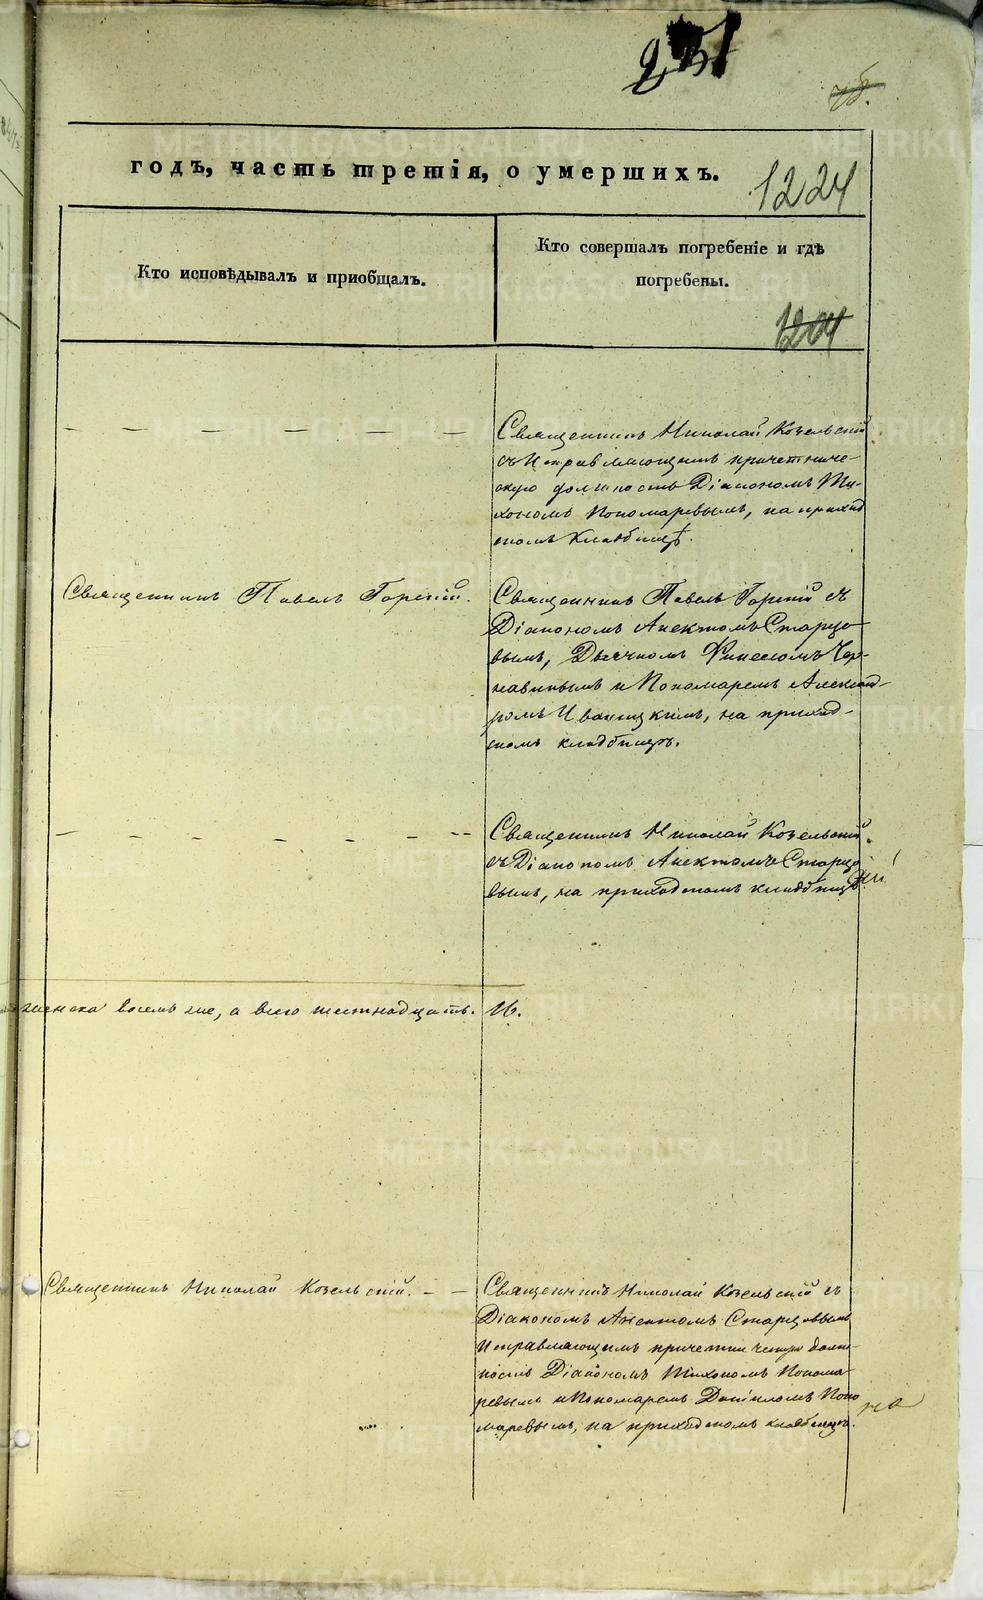 231
годъ, часть третія, о умершихъ.
1224
Кто исповѣдывалъ и приобщалъ.
Кто совершалъ погребеніе и гдѣ
погребены.
1204
Священникъ Николай Козельскій
съ Исправляющимъ причетниче-
скую должность Діакономъ Ти-
хономъ Пономаревымъ, на приход
скомъ кладбищѣ.
Священникъ Павелъ Горскій.
Священникъ Павелъ Горскій съ
Діакономъ Анектомъ Старцо-
вымъ, Дьячкомъ Чер-
навинымъ и Пономаремъ Александ-
ромъ Иваницкимъ, на приход-
скомъ кладбищѣ.
Священникъ Николай Козельскій
съ Діакономъ Анектомъ Старцо
вымъ, на приходскомъ кладбищѣ.
женска восемь же, а всего шестнадцать.
16.
Священникъ Николай Козельскій.
Священникъ Николай Козельскій съ
Діакономъ Анектомъ Старцовымъ
Исправляющимъ причетническую долж-
ность Діакономъ Тихономъ Понома-
ревымъ и Пономаремъ Даніиломъ Поно
маревымъ, на приходскомъ кладбищѣ.
METRIKI.GASO-URAL.RU